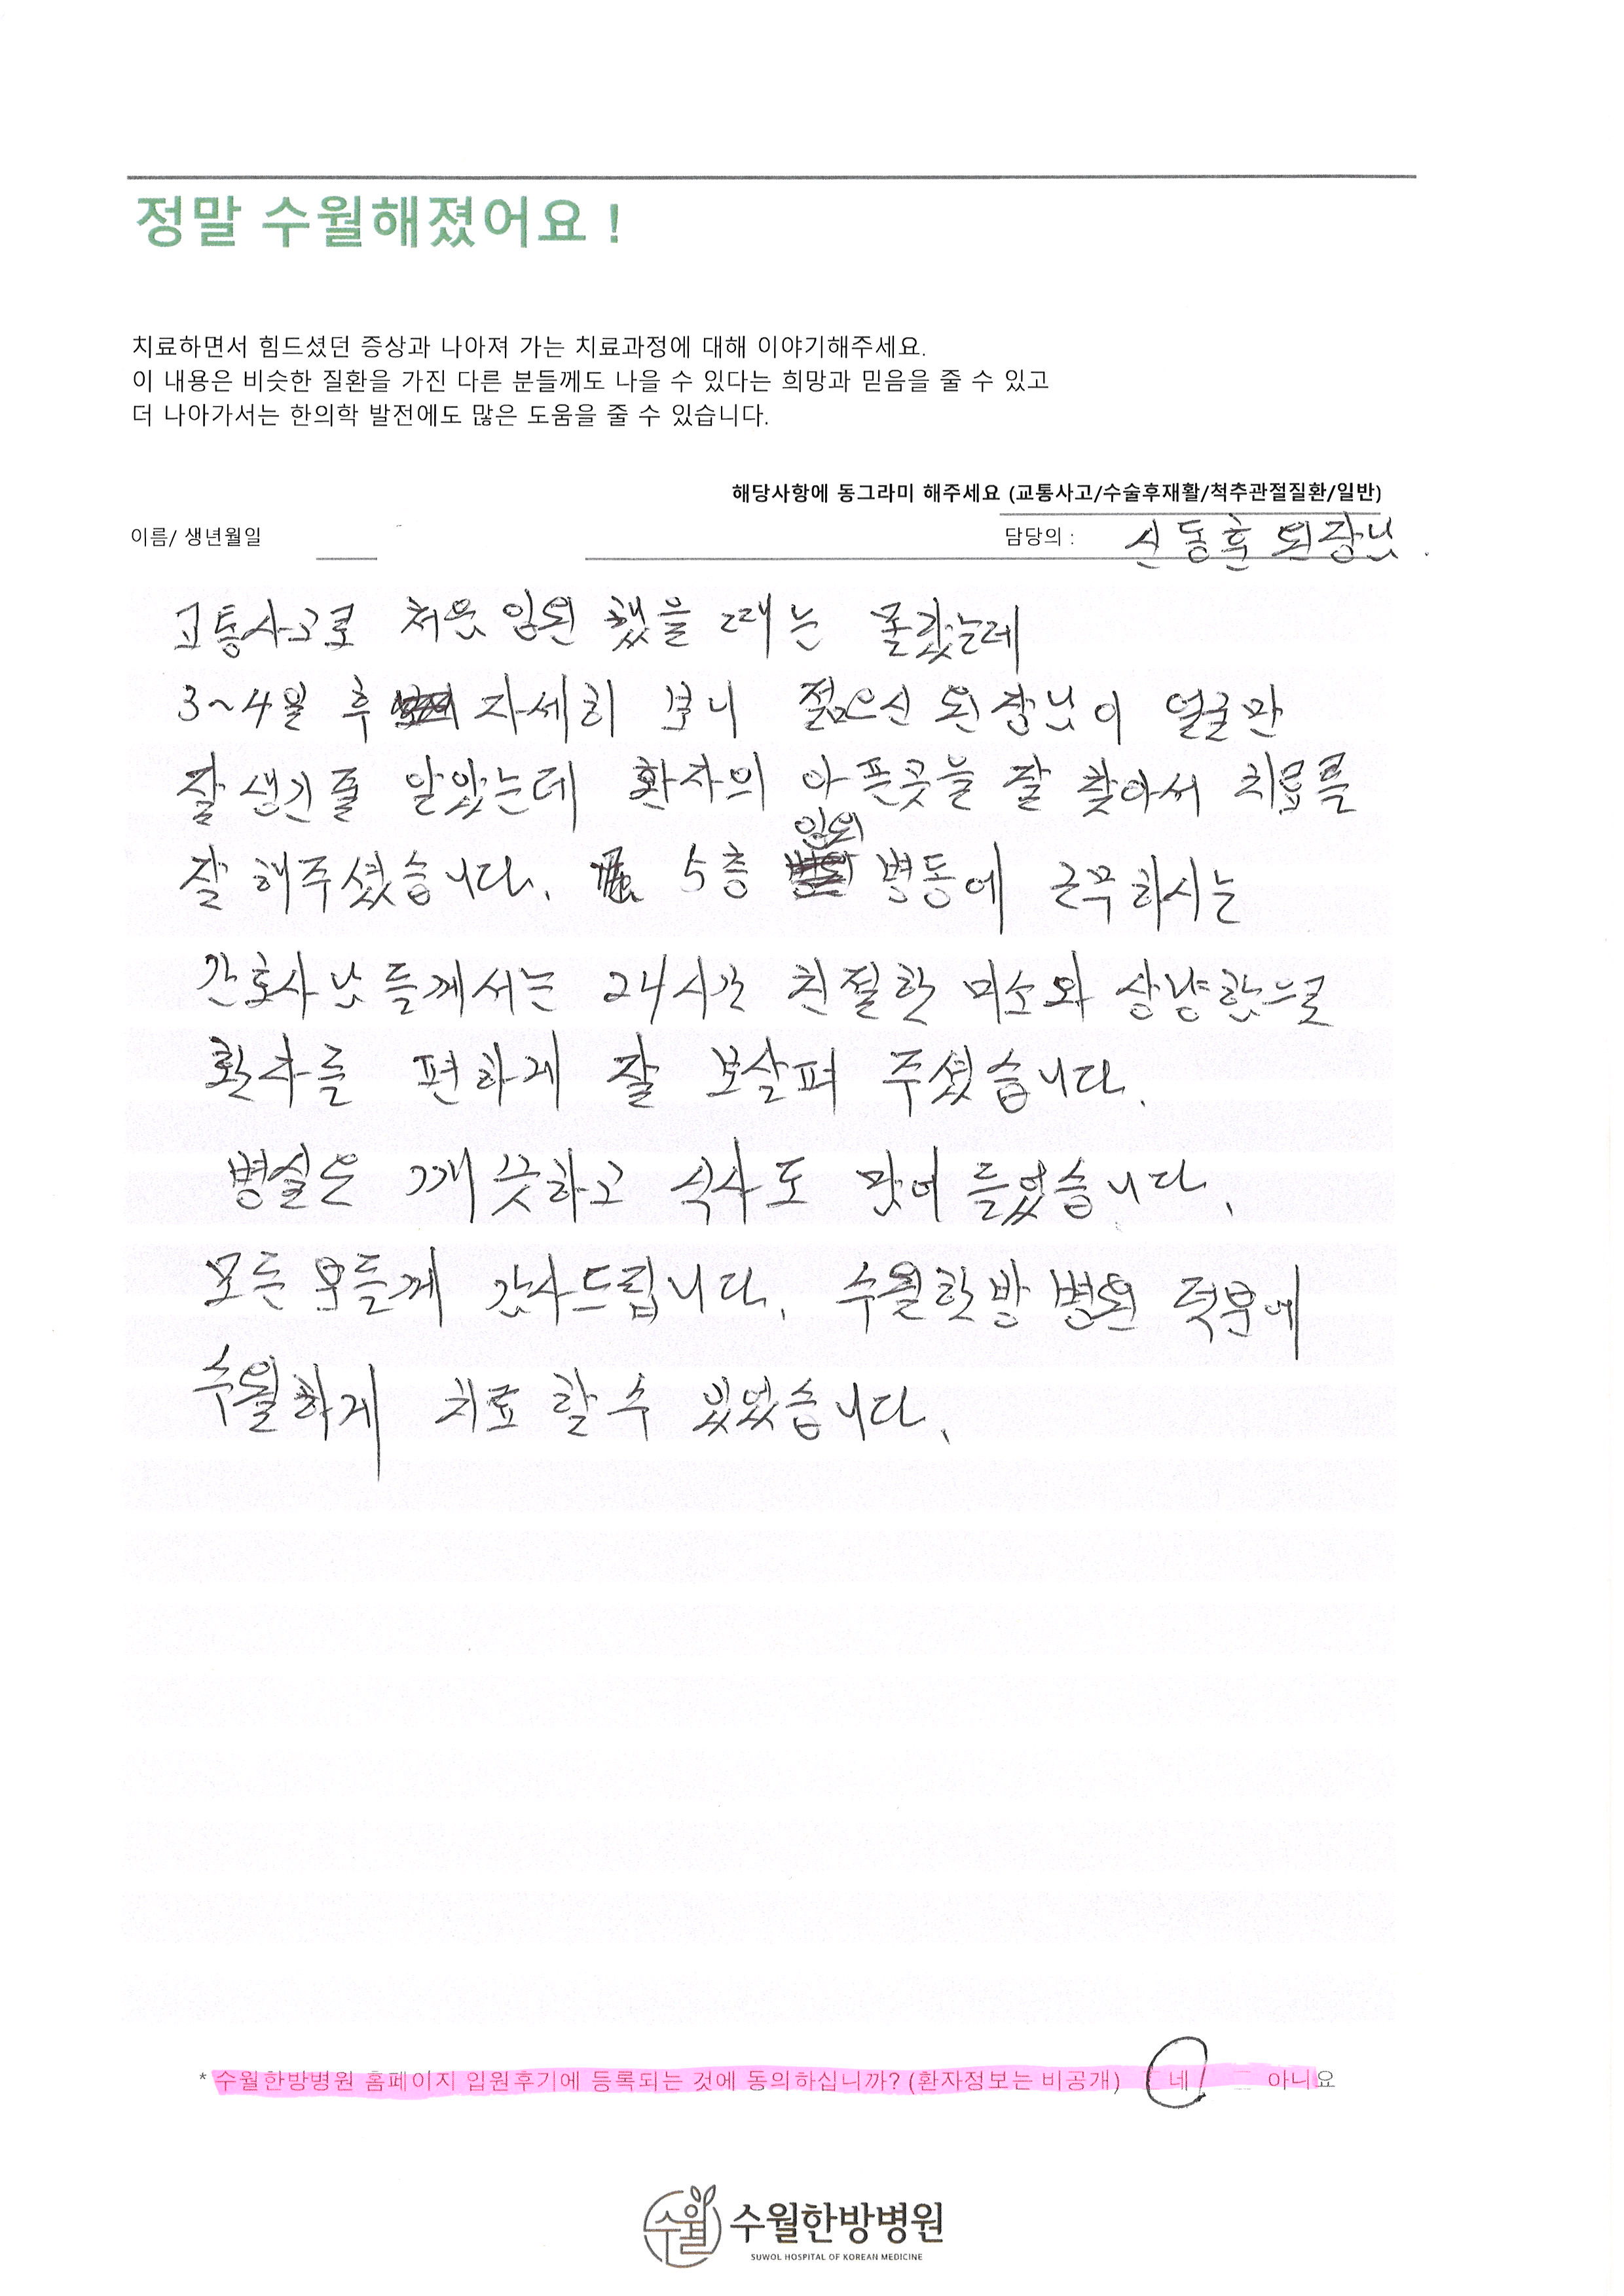 정말 수월해졌어요 !
치료하면서 힘드셨던 증상과 나아져 가는 치료과정에 대해 이야기해주세요.
이 내용은 비슷한 질환을 가진 다른 분들께도 나을 수 있다는 희망과 믿음을 줄 수 있고
더 나아가서는 한의학 발전에도 많은 도움을 줄 수 있습니다.
해당사항에 동그라미 해주세요 (교통사고/수술후재활/척추관절질환/일반)
이름/ 생년월일 담당의 : 신동훈 원장님.
교통사고로 처음 입원 했을 때는 몰랐는데
3~4일 후 자세히 보니 젊으신 원장님이 얼굴만
잘 생긴줄 알았는데 환자의 아픈곳을 잘 찾아서 치료를
잘 해주셨습니다. 5층 입원 병동에 근무하시는
간호사님들께서는 24시간 친절한 미소와 상냥함으로
환자를 편하게 잘 보살펴 주셨습니다.
병실은 깨끗하고 식사도 맛이 들었습니다.
모든 분들께 감사드립니다. 수월한방 병원 덕분에
수월하게 치료 할 수 있었습니다.
* 수월한방병원 홈페이지 입원후기에 등록되는 것에 동의하십니까? (환자정보는 비공개) 네 아니요
수월 수월한방병원
SUWOL HOSPITAL OF KOREAN MEDICINE